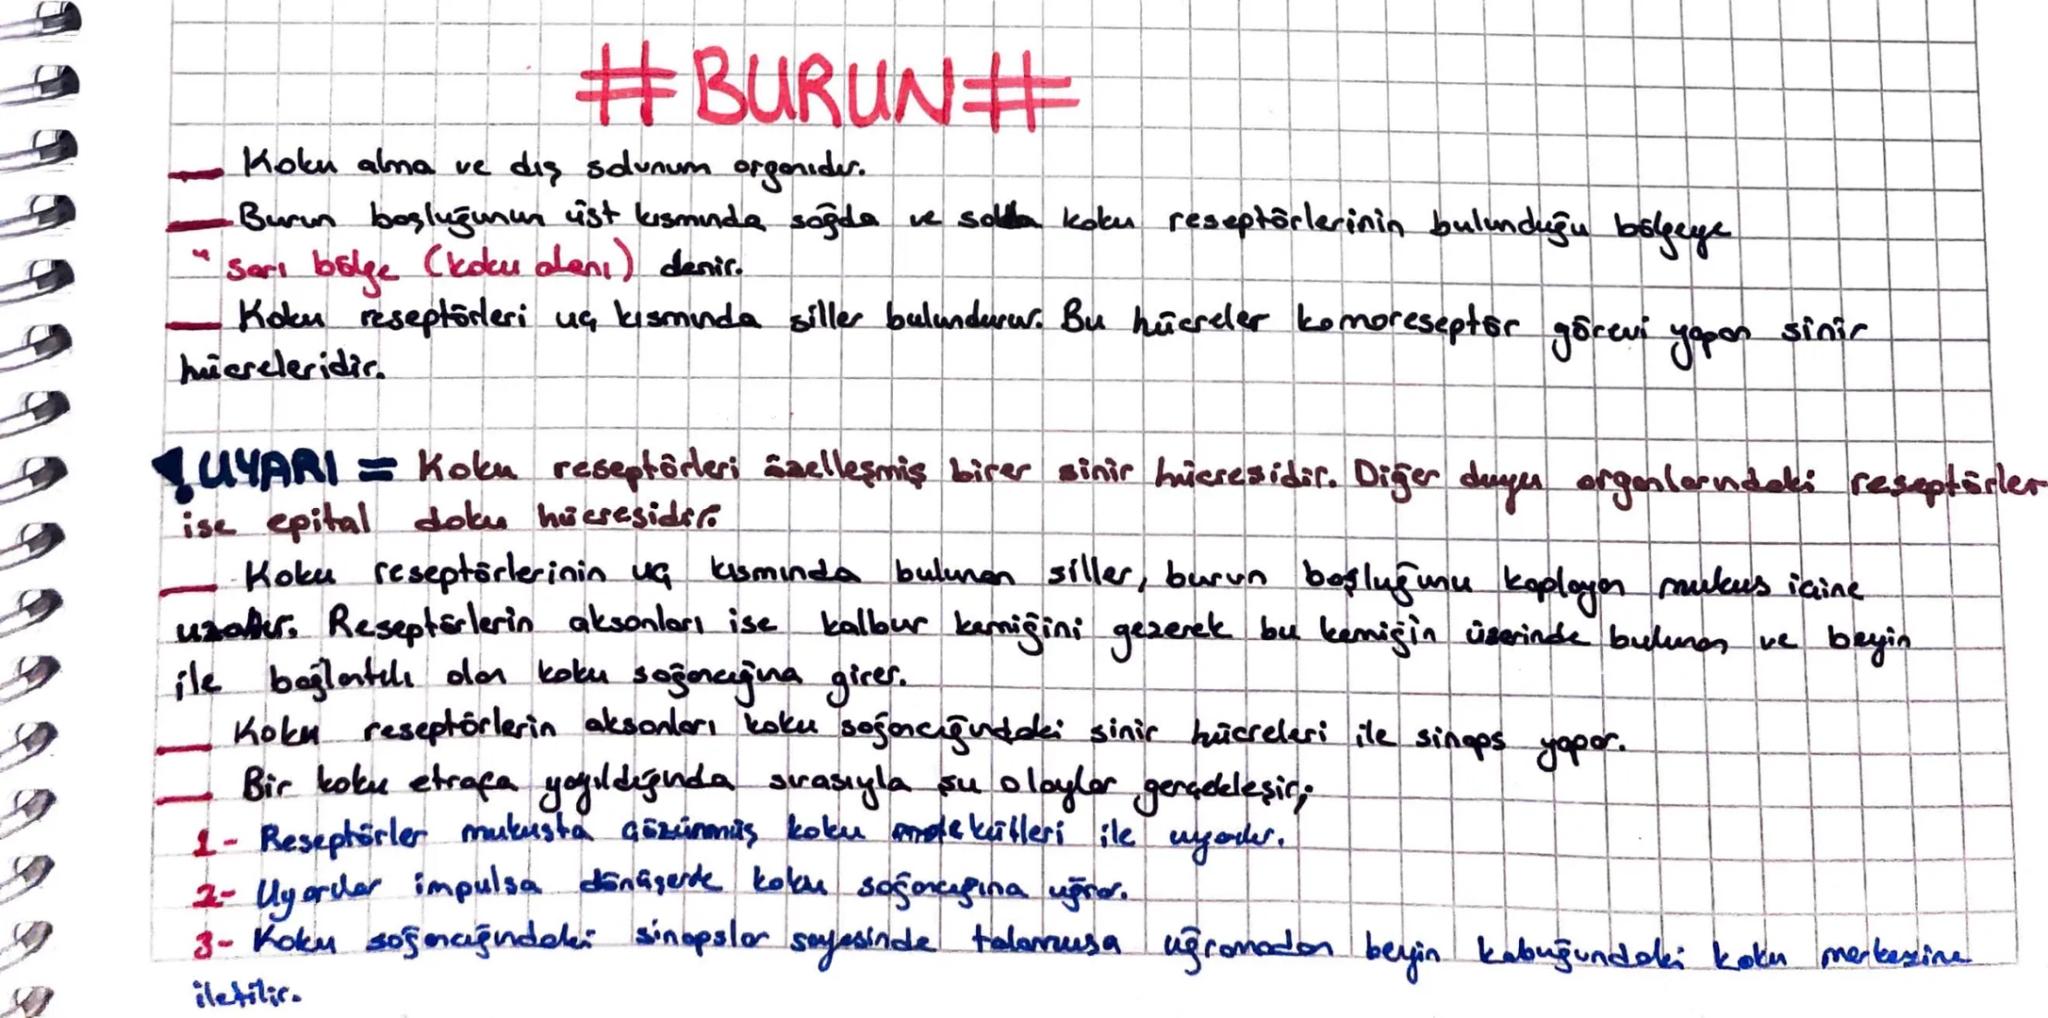 #BURUN#
— Koku alma ve dış solunum organıdır.
— Burun boşluğunun üst kısmında sağda ve solda koku reseptörlerinin bulunduğu bölgeye
" sarı bölge (koku alanı) denir.
— Koku reseptörleri uç kısmında siller bulundurur. Bu hücreler komoreseptör görevi yapan sinir
hücreleridir.
! UYARI = Koku reseptörleri özelleşmiş birer sinir hücresidir. Diğer duyu organlarındaki reseptörler
ise epital doku hücresidir.
— Koku reseptörlerinin uç kısmında bulunan siller, burun boşluğunu kaplayan mukus içine
uzatır. Reseptörlerin aksonları ise kalbur kemiğini gezerek bu kemiğin üzerinde bulunan ve beyin
ile bağlantılı olan koku soğancığına girer.
— Koku reseptörlerin aksonları koku soğancığındaki sinir hücreleri ile sinaps yapar.
— Bir koku etrafa yayıldığında sırasıyla şu olaylar gerçekleşir;
1- Reseptörler mukusta çözünmüş koku molekülleri ile uyarılır.
2- Uyarılar impulsa dönüşerek koku soğancığına uğrar.
3- Koku soğancığındaki sinapslar sayesinde talamusa uğramadan beyin kabuğundaki koku merkezine
iletilir.